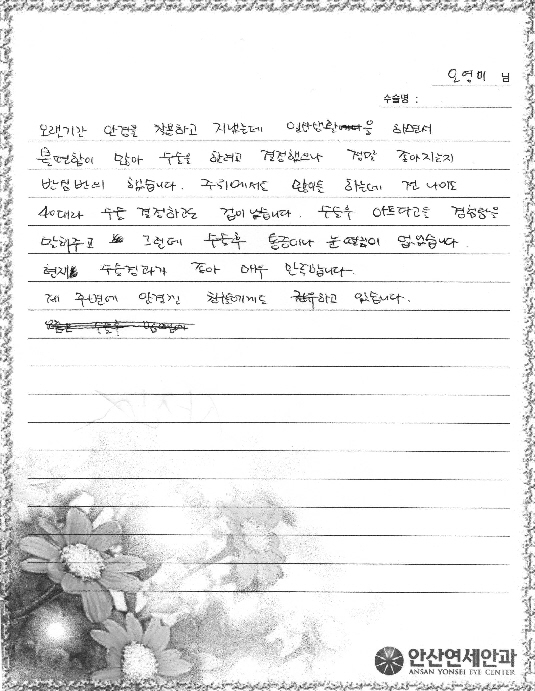 오영미 님
수술명 :
오랜기간 안경을 착용하고 지냈는데 일상생활을 하면서
불편함이 많아 수술을 하려고 결정했으나 정말 좋아지는지
반신반의 했습니다. 주위에서도 많이들 하는데 전 나이도
40대라 수술 결정하고도 겁이 났습니다. 수술후 아프다고들 경험담을
말해주고 그런데 수술후 통증이나 눈 땡김이 없었습니다.
현재 수술결과가 좋아 매우 만족합니다.
제 주변에 안경낀 친구들에게도 권유하고 있습니다.
안산연세안과
ANSAN YONSEI EYE CENTER